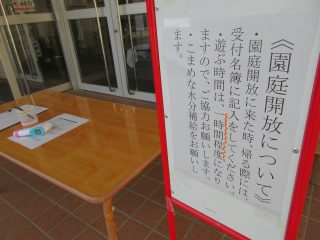 《園庭開放について》
・園庭開放に来た時、帰る際には、
受付名簿に記入をしてください。
・遊ぶ時間は、一時間程度になり
ますので、ご協力お願いします。
・こまめな水分補給をお願いし
ます。
AED